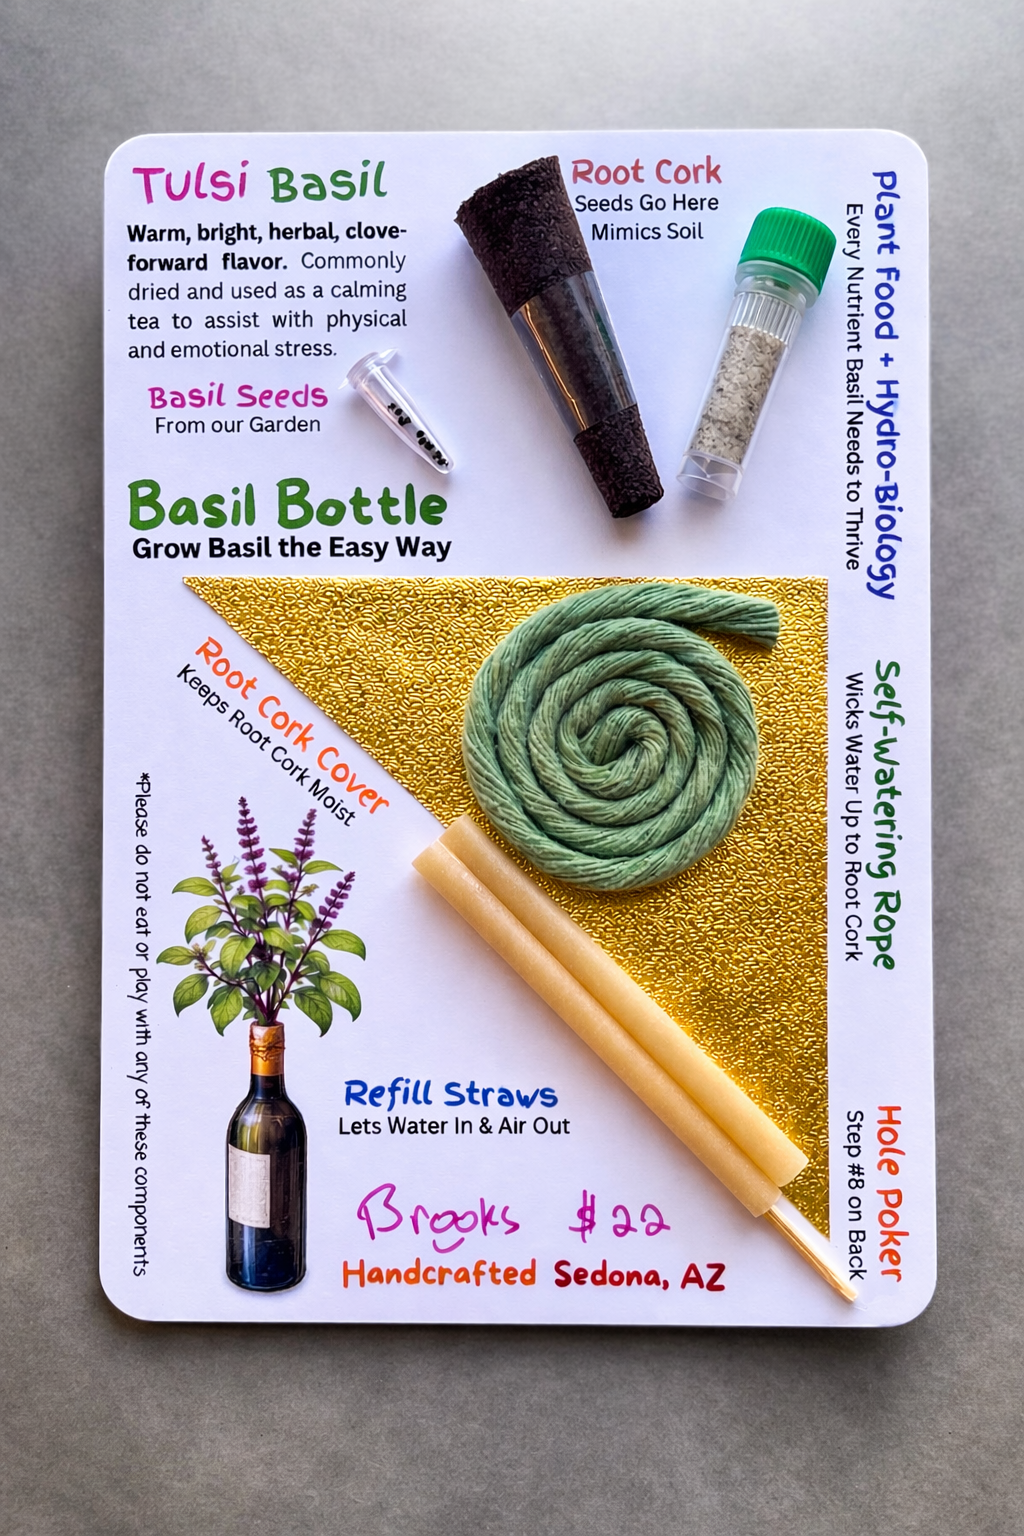 Tulsi Basil
Warm, bright, herbal, clove-
forward flavor. Commonly
dried and used as a calming
tea to assist with physical
and emotional stress.
Basil Seeds
From our Garden
Root Cork
Seeds Go Here
Mimics Soil
Plant Food + Hydro-Biology
Every Nutrient Basil Needs to Thrive
Basil Bottle
Grow Basil the Easy Way
Root Cork Cover
Keeps Root Cork Moist
Self-Watering Rope
Wicks Water Up to Root Cork
*Please do not eat or play with any of these components
Refill Straws
Lets Water In & Air Out
Hole Poker
Step #8 on Back
Brooks $22
Handcrafted Sedona, AZ